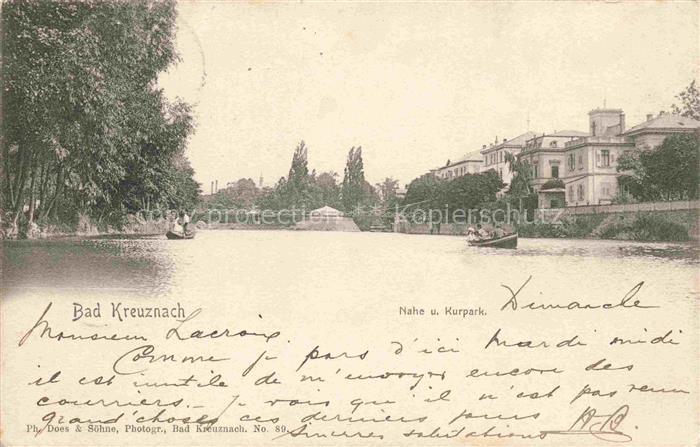 copy protection - Kopierschutz
Bad Kreuznach
Nahe u. Kurpark.
Dimanche
Monsieur Lacroix
Comme je pars d'ici mardi midi
il est inutile de m'envoyer encore des
courriers. Je vois qu'il n'est pas venu
grand'chose ces derniers jours
salutations
Ph. Does & Söhne, Photogr., Bad Kreuznach. No. 89.